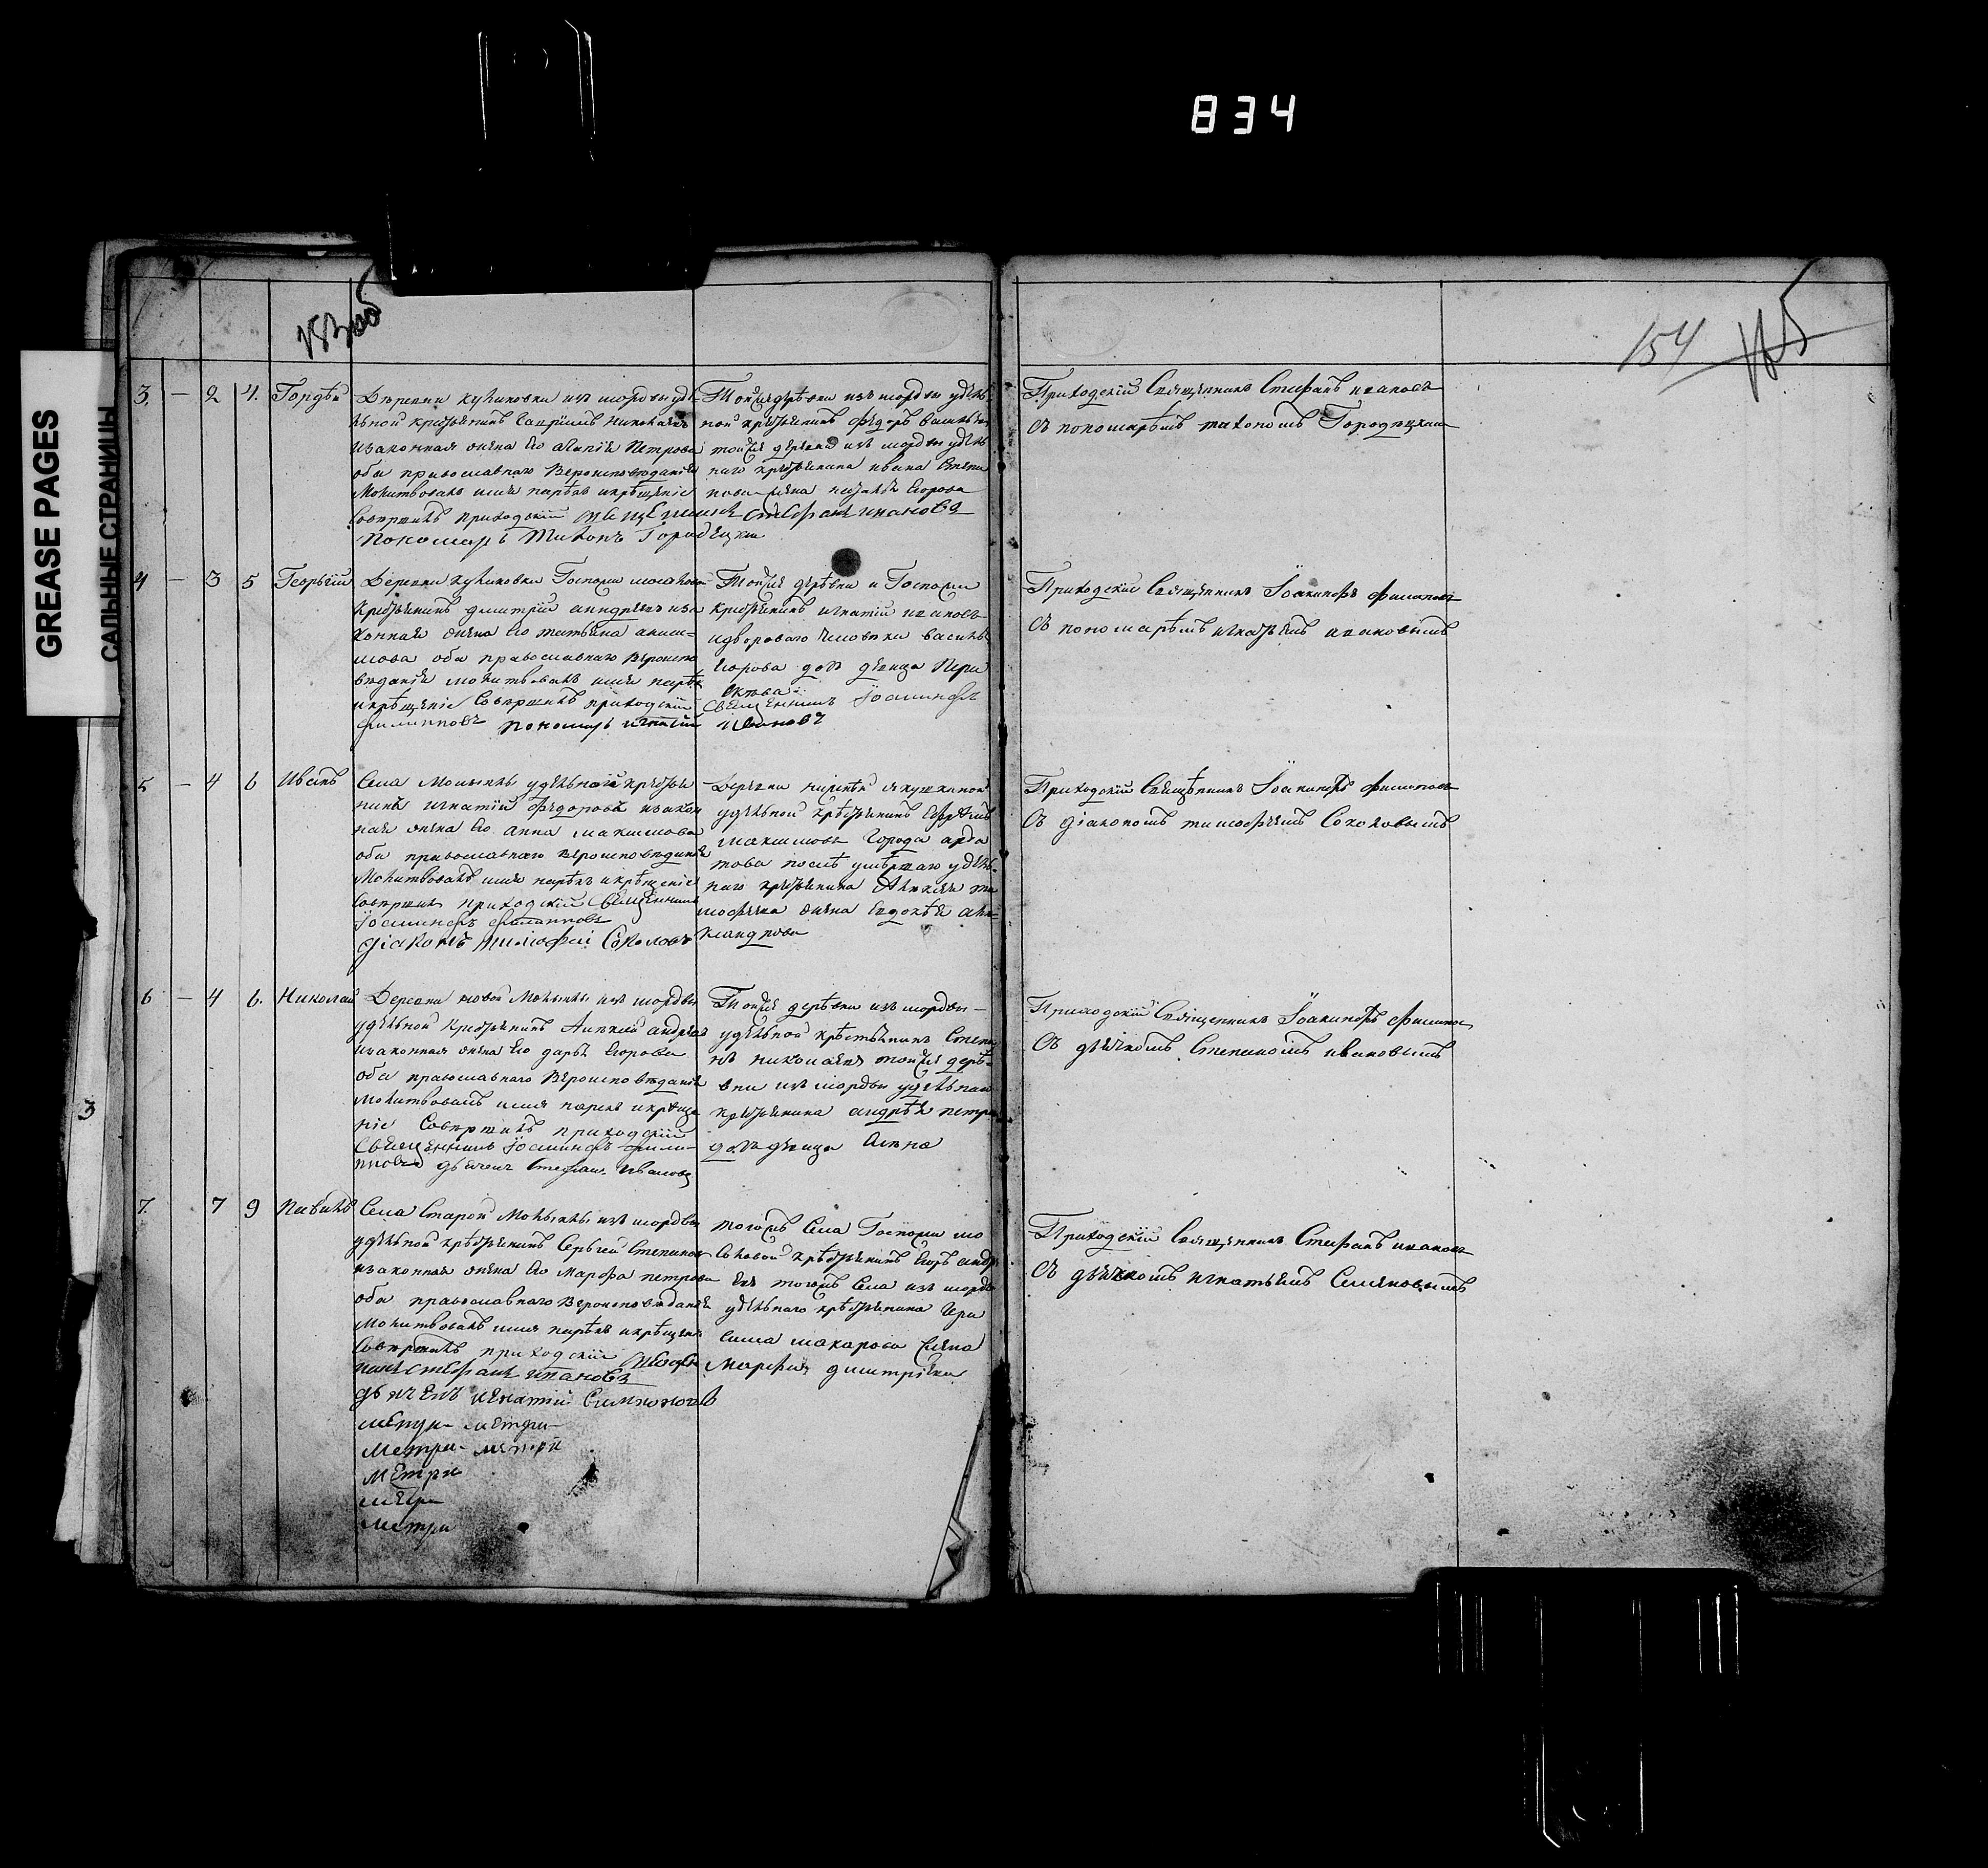 834
GREASE PAGES
САЛЬНЫЕ СТРАНИЦЫ
153 об
154
3. — 2 4. Гордѣй
Деревни куликовки изъ мордвы удѣ-
льной крестьянинъ Гавріилъ Николаевъ
изаконная жена Его Агапія Петрова
оба православнаго Вероисповѣданія
Молитвовалъ имя нарѣкъ икрѣщеніе
Совершилъ приходскій Священникъ Стефанъ ивановъ
Пономарь Тихонъ Городецкій
Тойже дерѣвни изъ мордвы удѣль
ной крѣстьянинъ федоръ
тойже деревни изъ мордвы удѣль
наго крѣстьянина ивана Степа
нова жена Егорова
Приходскій Священникъ Стефанъ ивановъ
Съ пономарѣмъ тихономъ Городецкимъ
4 — 3 5 Георьгій
Деревни куликовки Госпожи
крестьянинъ дмитрій андреевъ иза
конная жена Его татьяна аниси-
мова оба православнаго Вероиспо
вѣданія молитвовалъ имя нарѣкъ
икрѣщеніе Совершилъ приходскій
филипповъ Пономарь игнатій
Тойже дерѣвни и Госпожи
крестьянинъ игнатій ивановъ
идвороваго человека василья
Егорова дочь девица
Священникъ Іоакинфъ
Ивановъ
Приходскій Священникъ Іоакинфъ филиповъ
Съ пономарѣмъ игнатьемъ ивановымъ
5 — 4 6 Иванъ
Села удѣльной крестья
нинъ игнатій федоровъ изакон
ная жена Его анна максимова
оба православнаго вероисповѣданія
Молитвовалъ имя нарѣкъ икрѣщеніе
Совершилъ приходскій Священникъ
Іоакинфъ филипповъ
Діаконъ тимофей Соколовъ
удѣльной крѣстьянинъ Ефремъ
максимовъ Города арда
това послѣ умѣршаго удѣль-
наго крестьянина Алексея ти
мофеева жена Евдокѣя алѣ-
ксандрова
Приходскій Священникъ Іоакинфъ филиповъ
Съ діакономъ тимофеемъ Соколовымъ
6 — 4 6. Николай
Деревни новой изъ мордвы
удѣльной крестьянинъ Алексей андреевъ
изаконная жена Его дарья Егорова
оба православнаго Вероисповѣданія
молитвовалъ имя нарекъ икрѣще
ніе Совершилъ приходскій
Священникъ Іоакинфъ фили-
пповъ дьячекъ Стефанъ Ивановъ
Тойже дерѣвни изъ мордвы —
удѣльной крѣстьянинъ Степа
нъ николаевъ тойже дерѣ-
вни изъ мордвы удѣльнаго
крестьянина андрѣя петро
дочь девица Анна
Приходскій Священникъ Іоакинфъ филипов
Съ дьячкомъ Степаномъ ивановымъ
7. 7 9 Павилъ
Села Старой изъ мордвы
удѣльной крѣстьянинъ Сергей Степановъ
изаконная жена Его Марфа петрова
оба православнаго Вероисповѣданія
молитвовалъ имя нарѣкъ икрѣщеніе
Совершилъ приходскій Священ
никъ Стефанъ ивановъ
дьячекъ игнатій Симионовъ
тогожъ Села Госпожи
крѣстьянинъ Егоръ андр
евъ тогожъ Села изъ мордвы
удѣльнаго крѣстьянина Гера
сима макарова жена
Марфия дмитріева
Приходскій Священникъ Стефанъ ивановъ
Съ дьячкомъ игнатьемъ Семеновымъ
метри- метри-
Метри- метри
Метри
метри
Метри